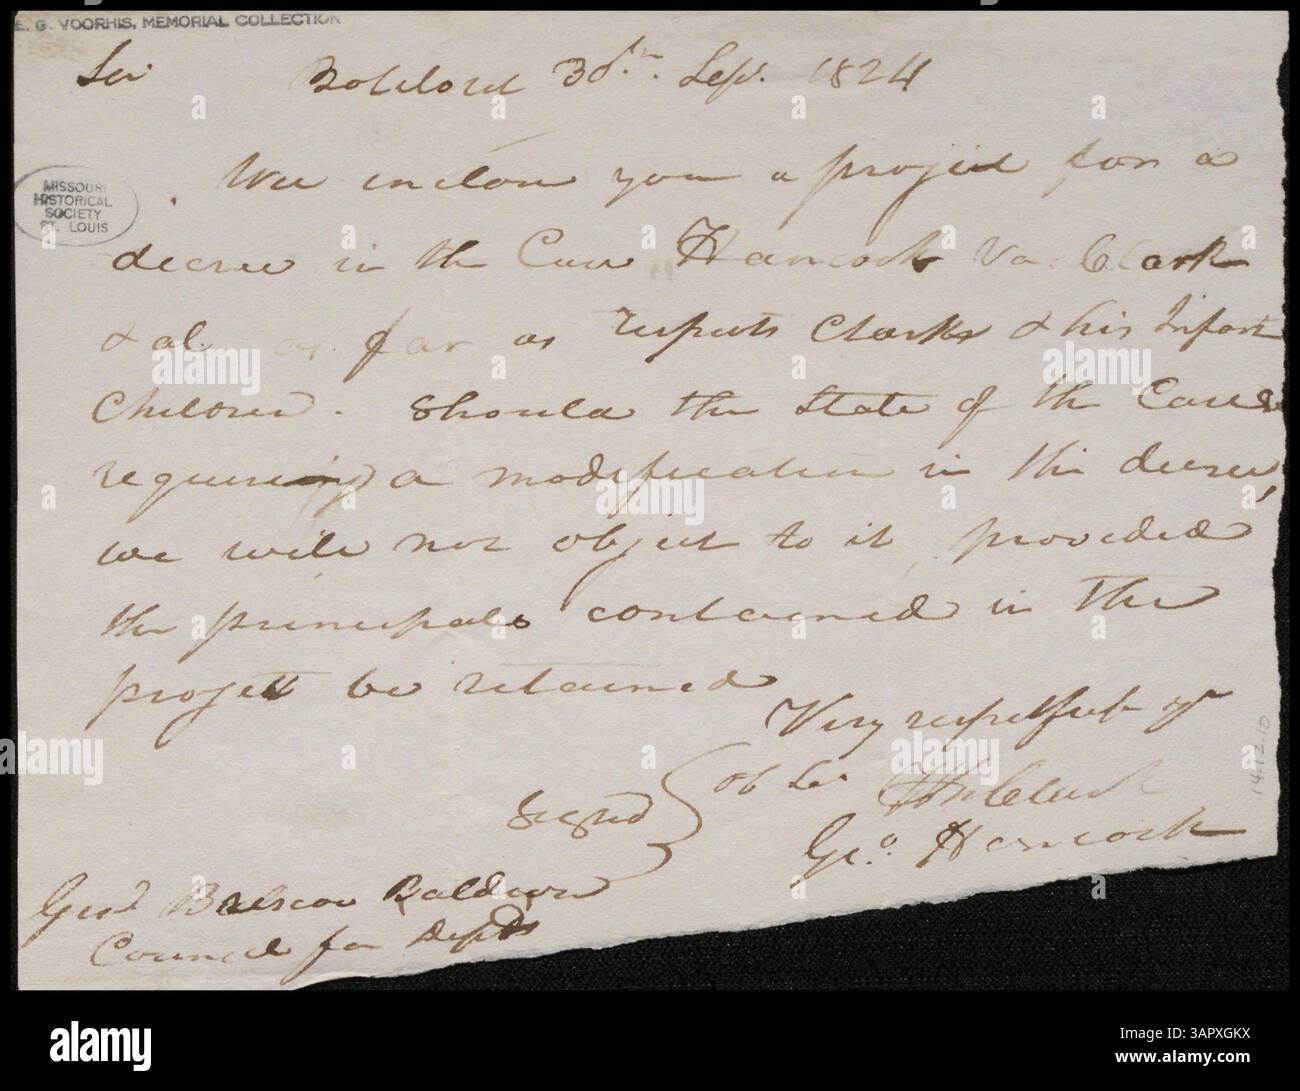 E. G. VOORHIS, MEMORIAL COLLECTION
Sir 30th. Sep. 1824
MISSOURI
HISTORICAL
SOCIETY
ST. LOUIS
We inclose you a project for a
decree in the Case Hancock Vs. Clark
& al. as far as respects Clarke & his Infant
Children. Should the State of the Cause
requiring a modification in the decree,
we will not object to it, provided
the principals contained in the
projett be retained
Very respetfuly yr
Ob Se
Signed
Wm Clark
Geo. Hancock
Genl. Briscoe Baldwin
Councel for Depdts
14.12.10
alamy
Image ID: 3APXGKX
www.alamy.com